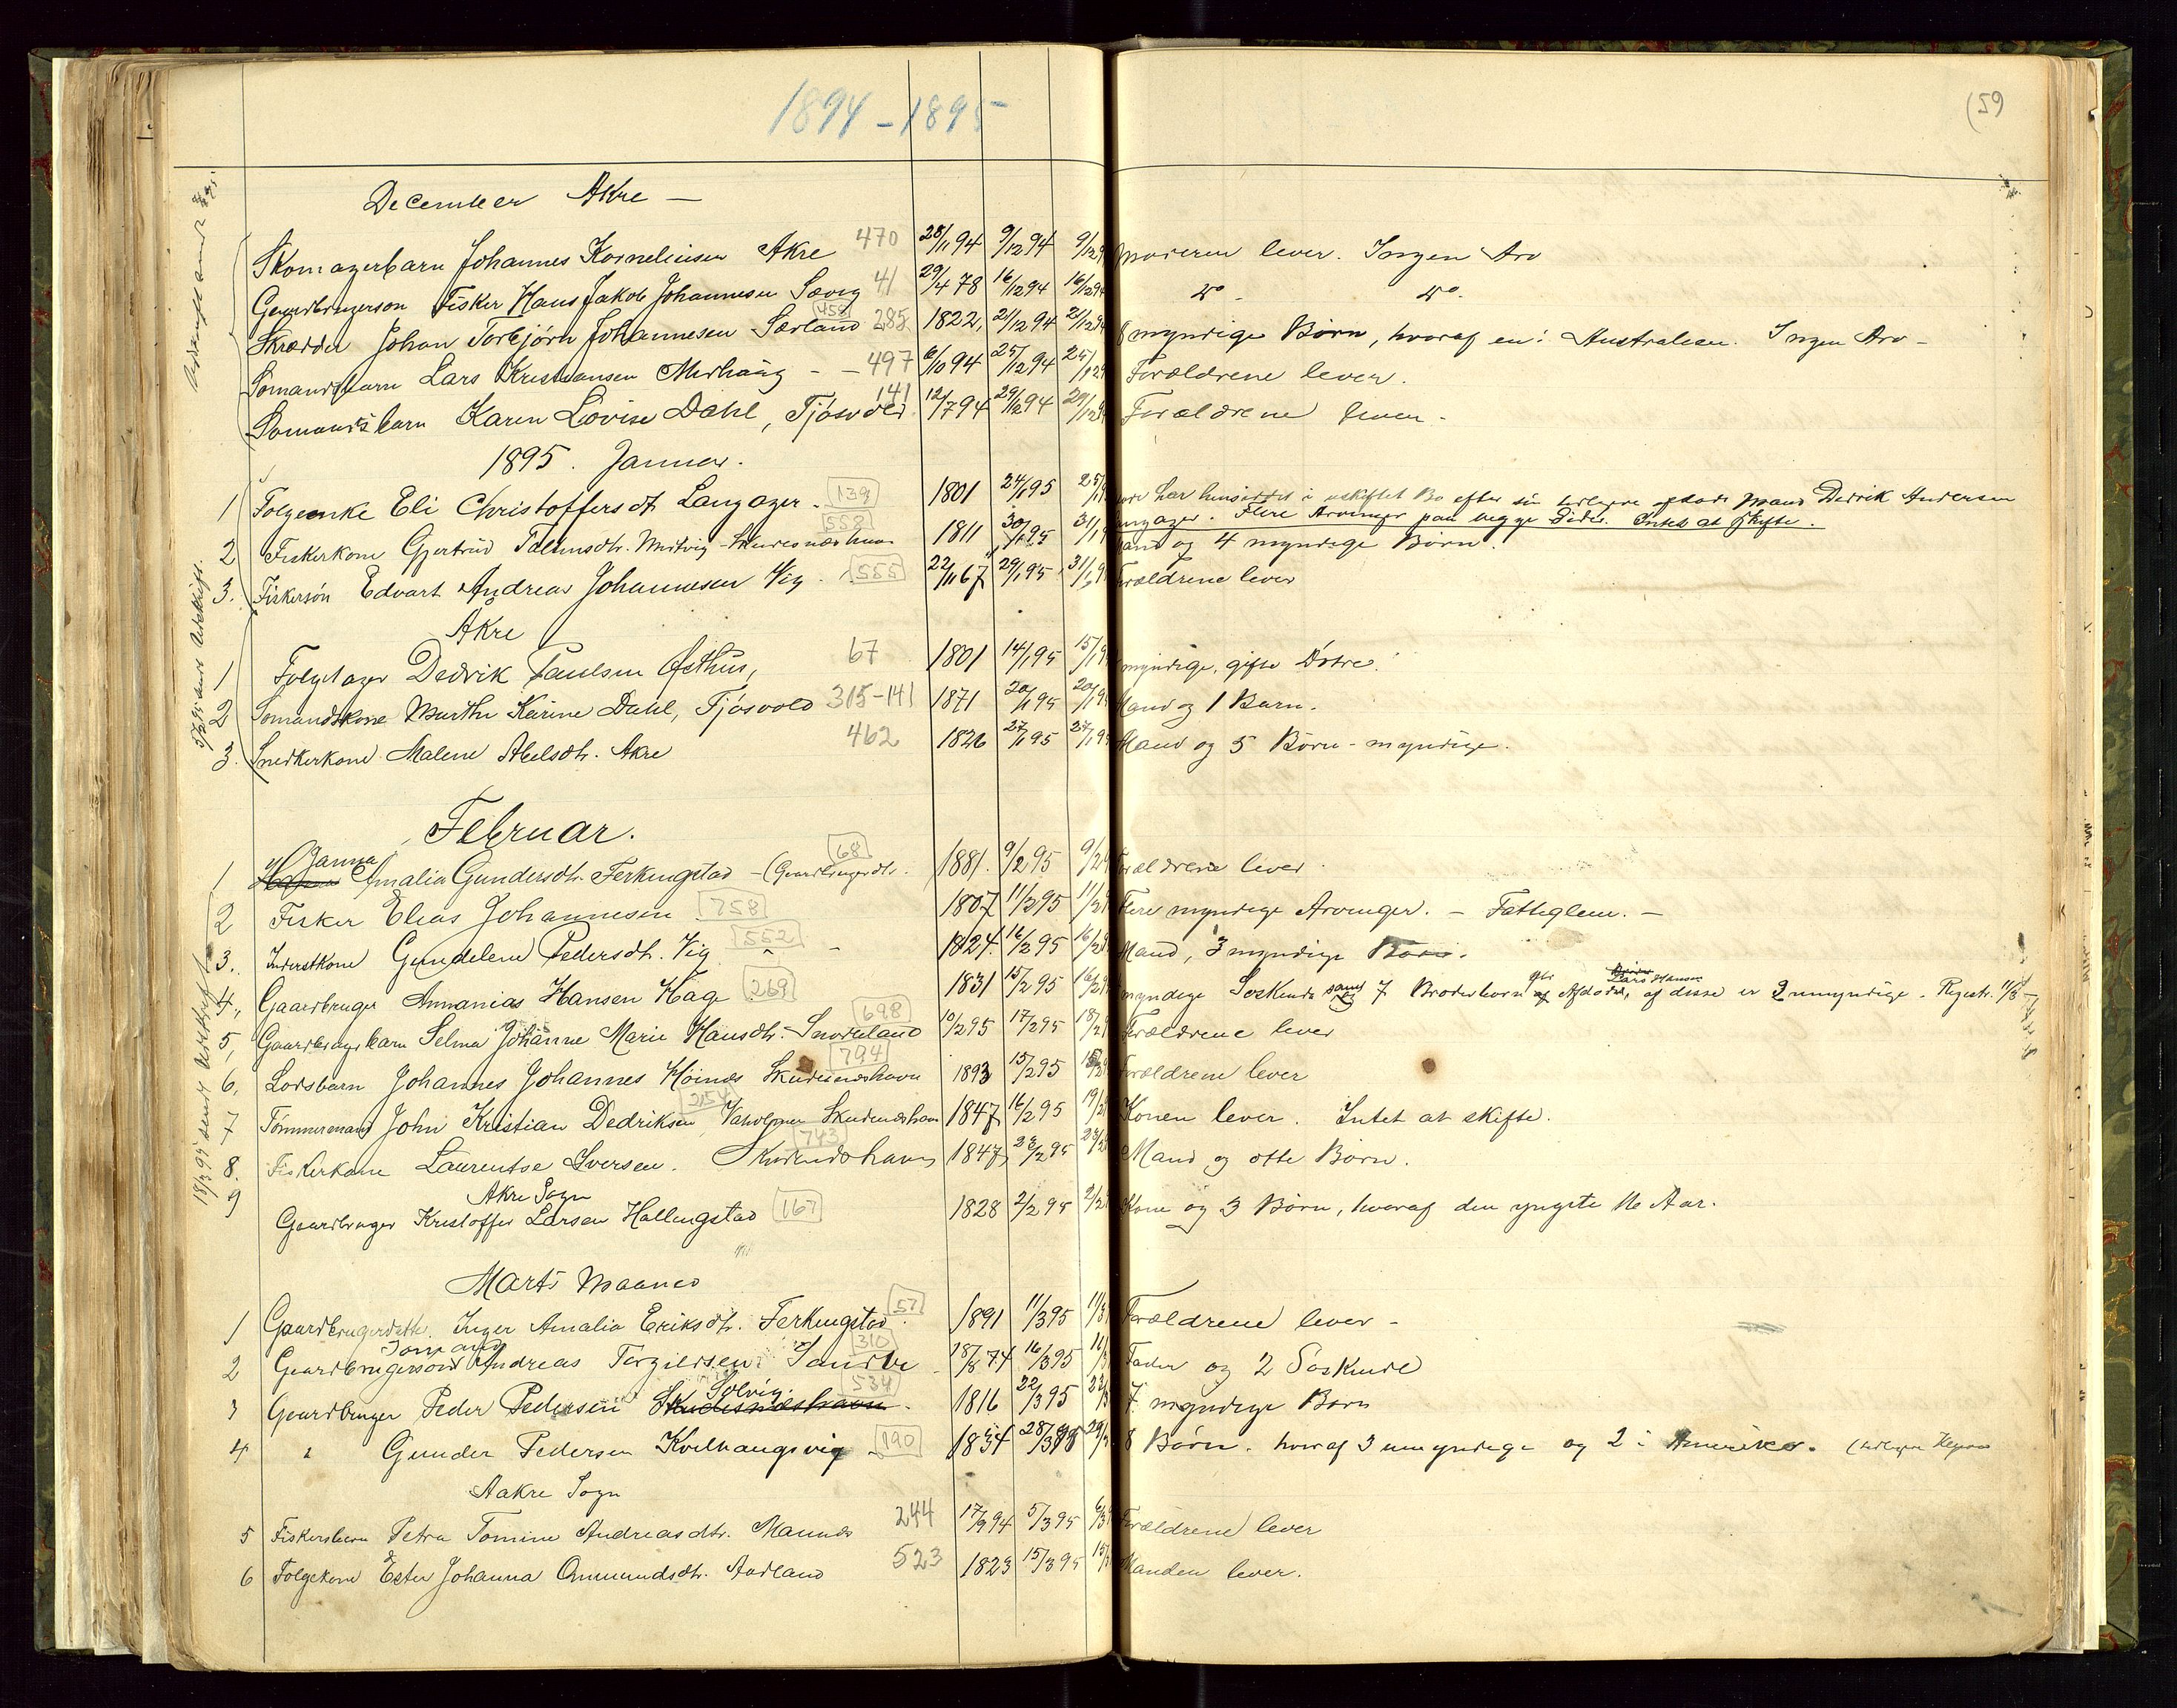 1894-1895
(59
December Akre —
Skomagerbarn Johannes Kornelinsen Akre 470 28/11 94 9/12 94 9/12 9 Moderen lever. Ingen Arv
Gaardbrugerson Fisker Hans Jakob Johannesen Sævig 41 29/4 78 16/12 94 16/12 94 do - do.
Skrædder Johan Torbjørn Johannesen Særland 285 1822, 21/12 94 21/12 94 8 myndige Børn, hvoraf en i Australien. Ingen Arv -
Sømandsbarn Lars Kristiansen Medhaug - - 497 6/10 94 25/12 94 25/12 9 Forældrene lever.
Sømandsbarn Karen Lovise Dahl, Tjøsvold 141 12/7 94 29/12 94 29/12 9 Forældrene lever.
1895. Januar.
1 Folgeenke Eli Christoffersdt Langager. 139 1801 24/1 95 25/1 har hensiddet i uskiftet Bo efter sin tidligere afdøde Mand Dedrik Andersen
Langager. Flere Arvinger paa begge Sider. Intet at skifte.
2 Fiskerkone Gjertrud Skudesnæshavn 552 1811 30/1 95 31/1 Mand og 4 myndige Børn.
3. Fiskersøn Edvart Andreas Johannesen Vig. 555 22/11 67 29/1 95 31/1 9 Forældrene lever
Akre
1 Folgetager Dedrik Paulsen Østhus, 67 1801 14/1 95 15/1 9 myndige, gifte Døtre.
2 Sømandskone Marthe Karine Dahl, Tjøsvold 315-141 1871 20/1 95 20/1 95 Mand og 1 Barn.
3. Snedkerkone Malene Abelsdtr. Akre 462 1826 27/1 95 27/1 95 Mand og 5 Børn - myndige.
Februar.
Janna
1 Amalia Gundersdtr. Ferkingstad - (Gaardbrugerdtr. 68 1881. 9/2 95 9/2 9 Forældrene lever
2 Fisker Elias Johannesen 758 1807 11/2 95 11/2 9 Flere myndige Arvinger. - Fatteglem. -
3. Inderstkone Gundelene Pedersdtr. Vig 552 - 1824. 16/2 95 16/2 9 Mand, 3 myndige Børn.
4., Gaardbruger Annanias Hansen Hage 269 1831 15/2 95 16/2 9 myndige Søskende samt 7 Broderbørn af Afdøde Lars Hansen, af disse er 2 umyndige. Regestr. 11/3
5, Gaardbrugerbarn Selma Johanne Marie Hansdtr. Snorteland 698 10/2 95 17/2 95 18/2 9 Forældrene lever
6, Lodsbarn Johannes Johannes Høines Skudesnæshavn 794 1893 15/2 95 18/2 9 Forældrene lever
7 Tømmermand John Kristian Dedriksen Skudesnæshavn 1847 16/2 95 19/2 Konen lever. Intet at skifte.
8. Fiskerkone Laurentse Iversen. Skudesnæshavn 743 1847, 23/2 95 23/2 9 Mand og otte Børn.
Akre Sogn
9 Gaardbruger Kristoffer Larsen Hallingstad 167 1828 2/2 95 2/2 9 Kone og 3 Børn, hvoraf den yngste 16 Aar.
Marts Maaned
1 Gaardbrugerdatr. Inger Amalia Eriksdtr. Ferkingstad. 57 1891 11/3 95 11/3 Forældrene lever -
Sømand
2 Gaardbrugersøn Andreas Torgildsen Sandve 310 18/8 74 16/3 95 16/3 Fader og 2 Søskende
Solvig.
3 Gaardbruger Peder Pedersen Skudesnæshavn. 534 1816 22/3 95 22/3 7 myndige Børn
4 " Gunder Pedersen Kvilhaugsvig 190 1834 28/3 95 29/3 8 Børn. hvoraf 3 umyndige og 2 i Amerika.
Aakre Sogn
5 Fiskersbarn Petra Tomine Andreasdtr. Mannes 244 17/9 94 5/3 95 6/3 9 Forældrene lever
6 Folgekone Ester Johanna Ommundsdtr. Aadland 523 1823 15/3 95 15/3 Manden lever.